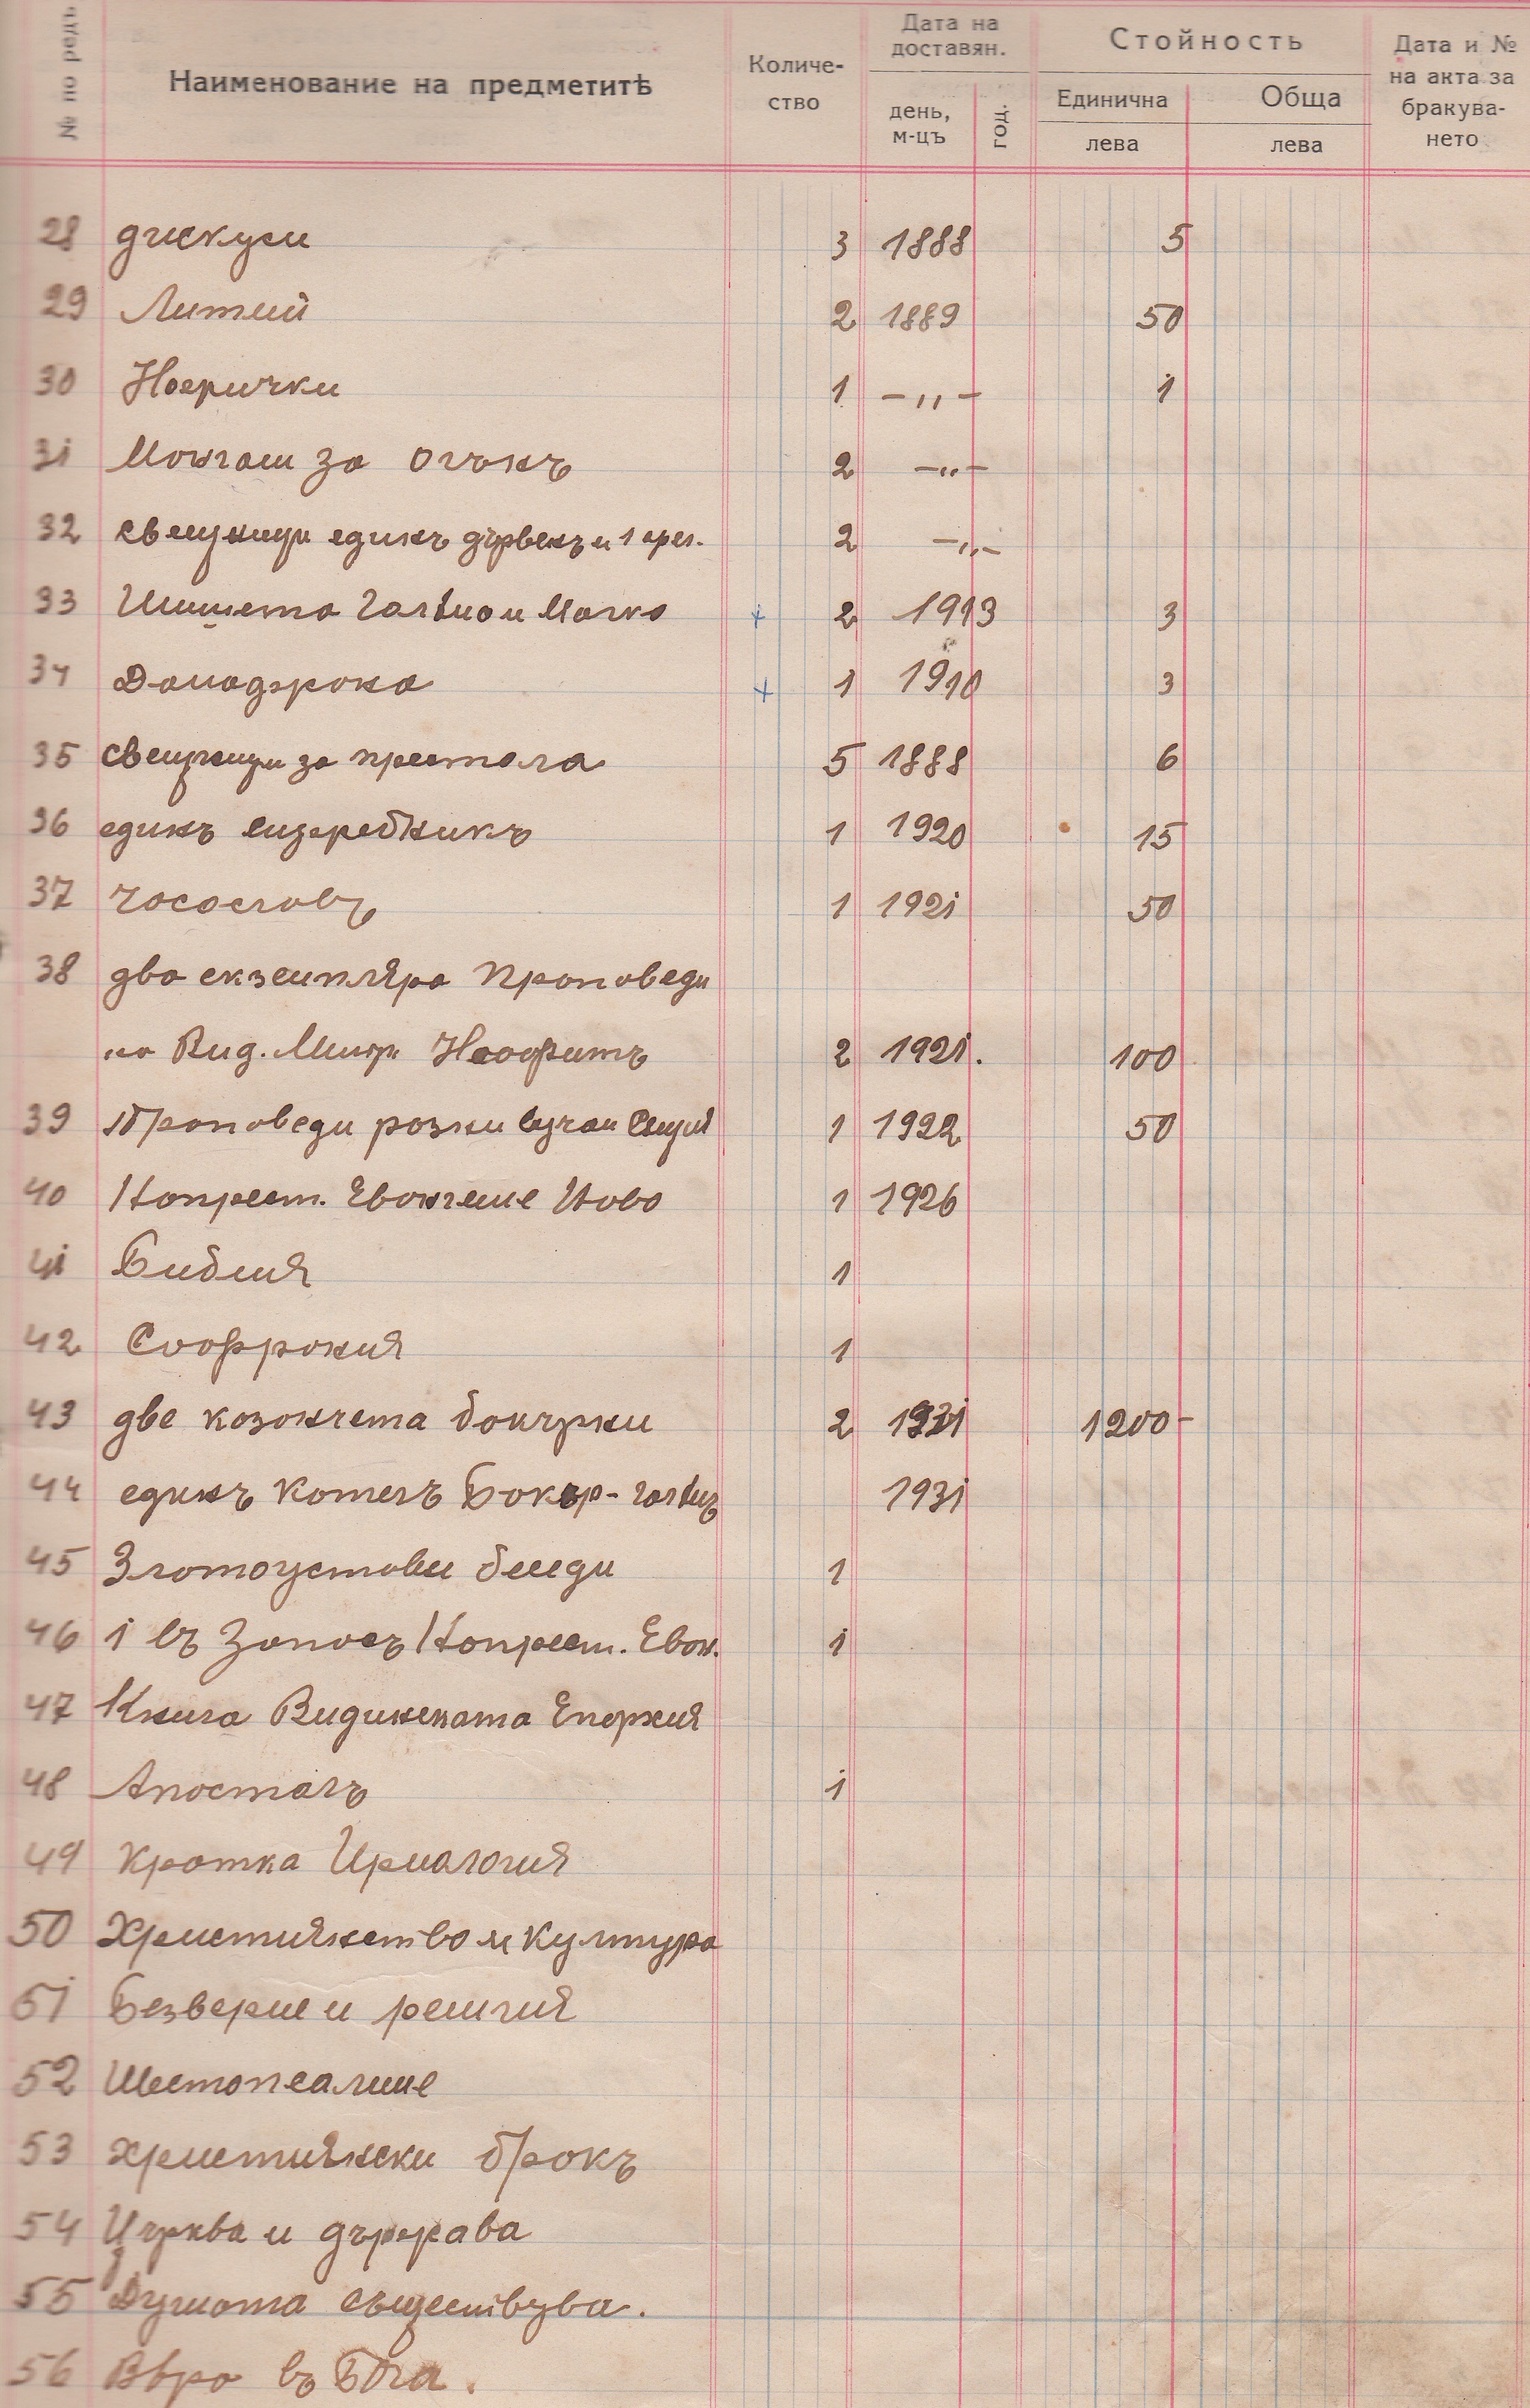 № по редъ
Наименование на предметитѣ
Количе-
ство
Дата на
доставян.
день,
м-цъ
год.
Стойность
Единична
Обща
лева
лева
Дата и №
на акта за
бракува-
нето
28 дискуси 3 1888 5
29 Литий 2 1889 50
30 Ножички 1 –„– 1
31 Мангали за огънъ 2 –„–
32 свещници единъ дървенъ и 1 2 –„–
33 Шишета Голѣмо и Малко + 2 1913 3
34 Дамаджана + 1 1910 3
35 свещници за престола 5 1888 6
36 единъ 1 1920 15
37 Часословъ 1 1921 50
38 два екземпляра Проповеди
на Вид. Митр. Неофитъ 2 1921. 100
39 Проповеди разни случаи 1 1922 50
40 Напрест. Евангелие Ново 1 1926
41 Библия 1
42 Софрония 1
43 две казанчета бакърни 2 1931 1200-
44 единъ Котелъ Бакър- голѣмъ 1931
45 Златоустови беседи 1
46 1 въ Запасъ Напрест. Еван. 1
47 Книга Видинската Епархия
48 Апостолъ 1
49 Кратка Ирмология
50 Християнство и Култура
51 Безверие и религия
52 Шестопсалмие
53 християнски бракъ
54 Църква и държава
55 Душата съществува.
56 Вѣра въ Бога.